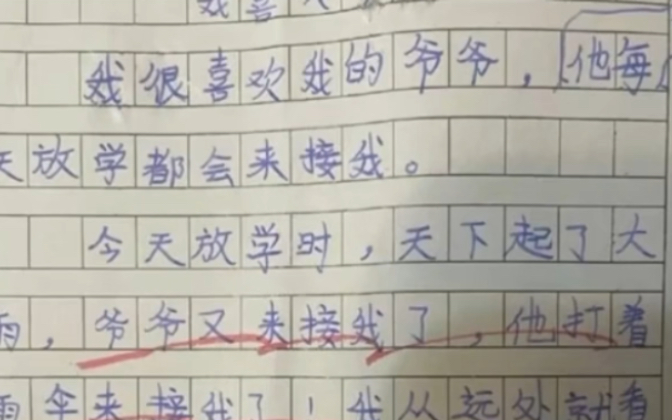 戏喜
我很喜欢我的爷爷，他每
天放学都会来接我。
今天放学时，天下起了大
雨，爷爷又来接我了，他打着
雨伞来接我了！我从远处就看